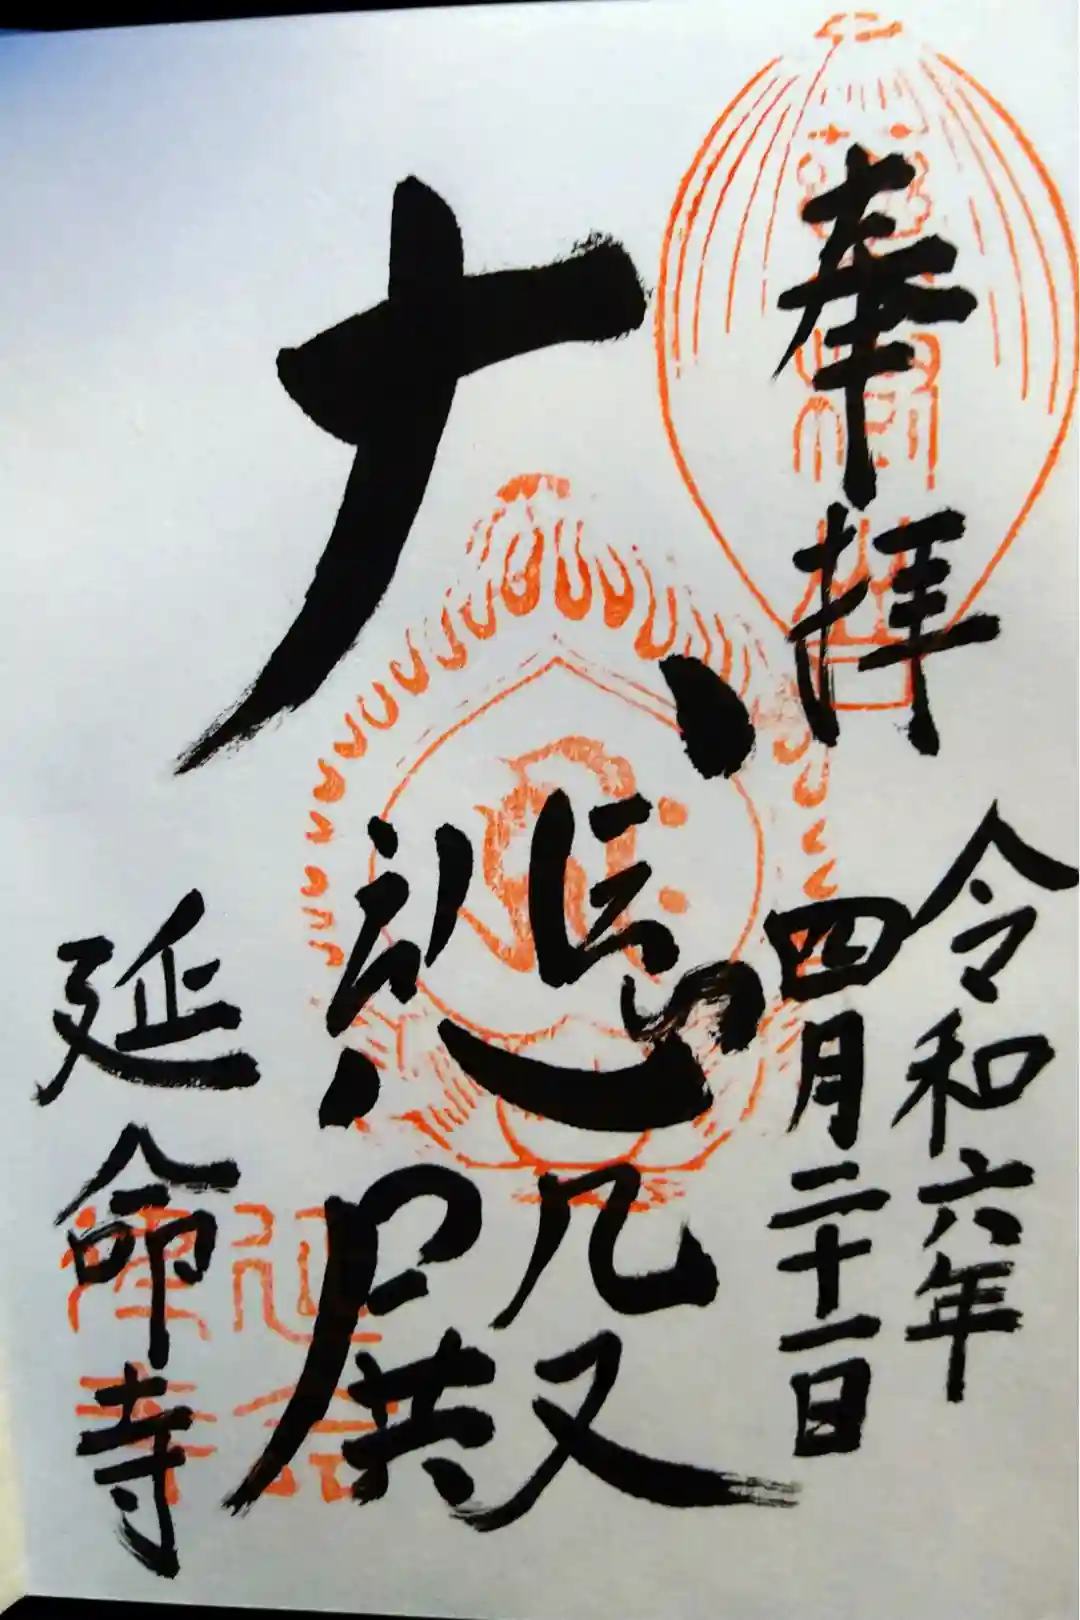 奉拝
令和六年
四月二十一日
大悲殿
延命寺